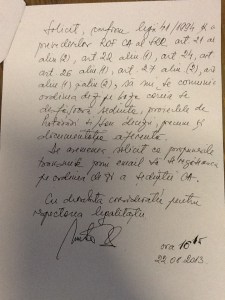 Solicit, conform legii 41/1994 și
prevederilor ROF CA al SRR, art 21 al
aliu (2), art 22 aliu (1), art 24, art
art 26 aliu (1), art 27 aliu (2), art
aliu (1), aliu (2), să mi se comunice
ordinea de zi pe baza căreia se
desfășoară ședințele, procesele de
hotărâri
decizii, precum și
documentația aferentă
De asemenea solicit ca propunerile
transmise prin email să
pe ordinea de zi a ședinței CA.
Cu deosebită considerație pentru
respectarea legalității
ora 10
22.08.2013